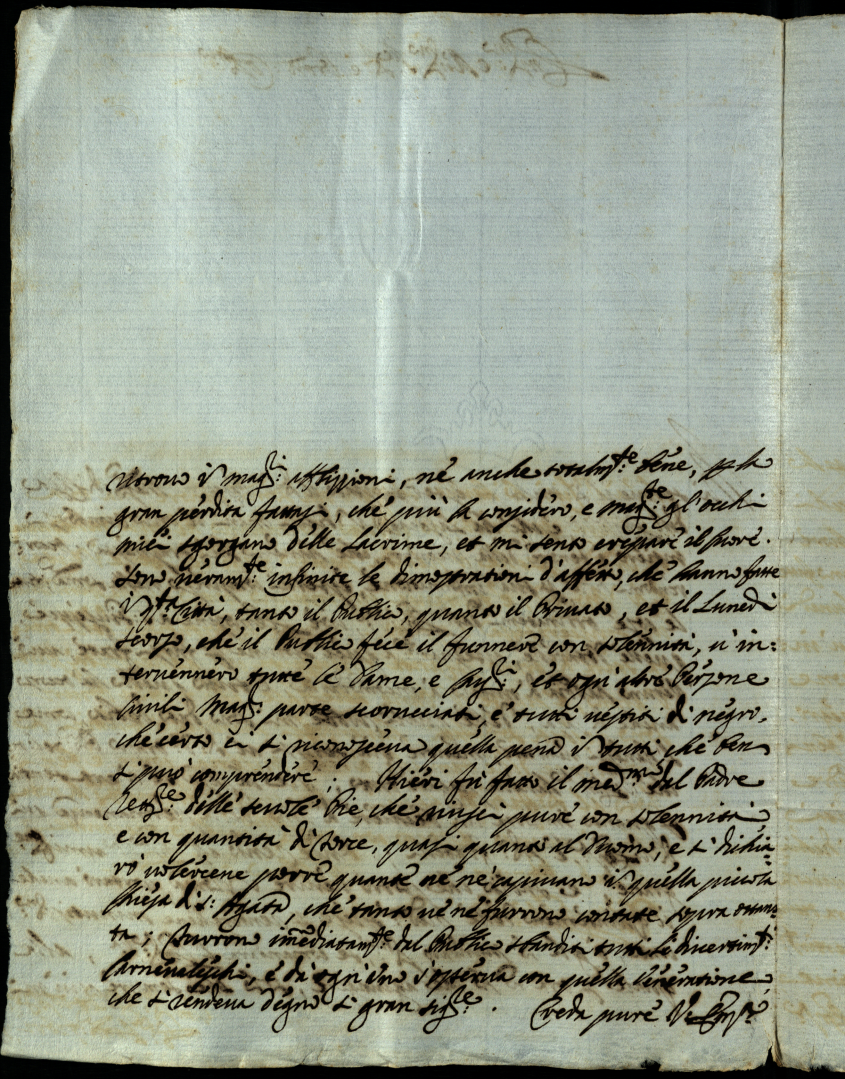 ritrovo in mag.ri afflizzioni, nè anche totalm.te bene, p la
gran perdita fattasi, che più la considero, e mag.te gl'occhi
miei sgorgano delle lacrime, et mi sento crepare il cuore.
Sono veram.te infinite le dimostrationi d'affetto, che hanno fatte
in q.ta Città, tanto il Publico, quanto il Privato, et il Lunedi
scorso, che il Publico fece il funnere con solennità, v'in=
tervennero tutte le Dame, e et ogn'altre Persone
Civili mag. parte scorucciati, e tutti vestiti di negro,
che certo ci si riconosceva quella pena in tutti che ben
si può comprendere; Hieri fù fatto il med.mo dal Padre
delle scuole Pie, che riuscì pure con solennità
e con quantità di torce, quasi quanto al Duomo, e si dichia=
rò volercene porre quante ve ne capivano in quella piccola
Chiesa di S: Agata, che tante ve ne furrono contate sopra ottan=
ta; furrono immediatam.te dal Publico sbanditi tutti li divertim.ti
Carnevaleschi, e da ogn'uno s'osserva con quella veneratione
che si rendeva degno si gran sig.re. Creda pure V.